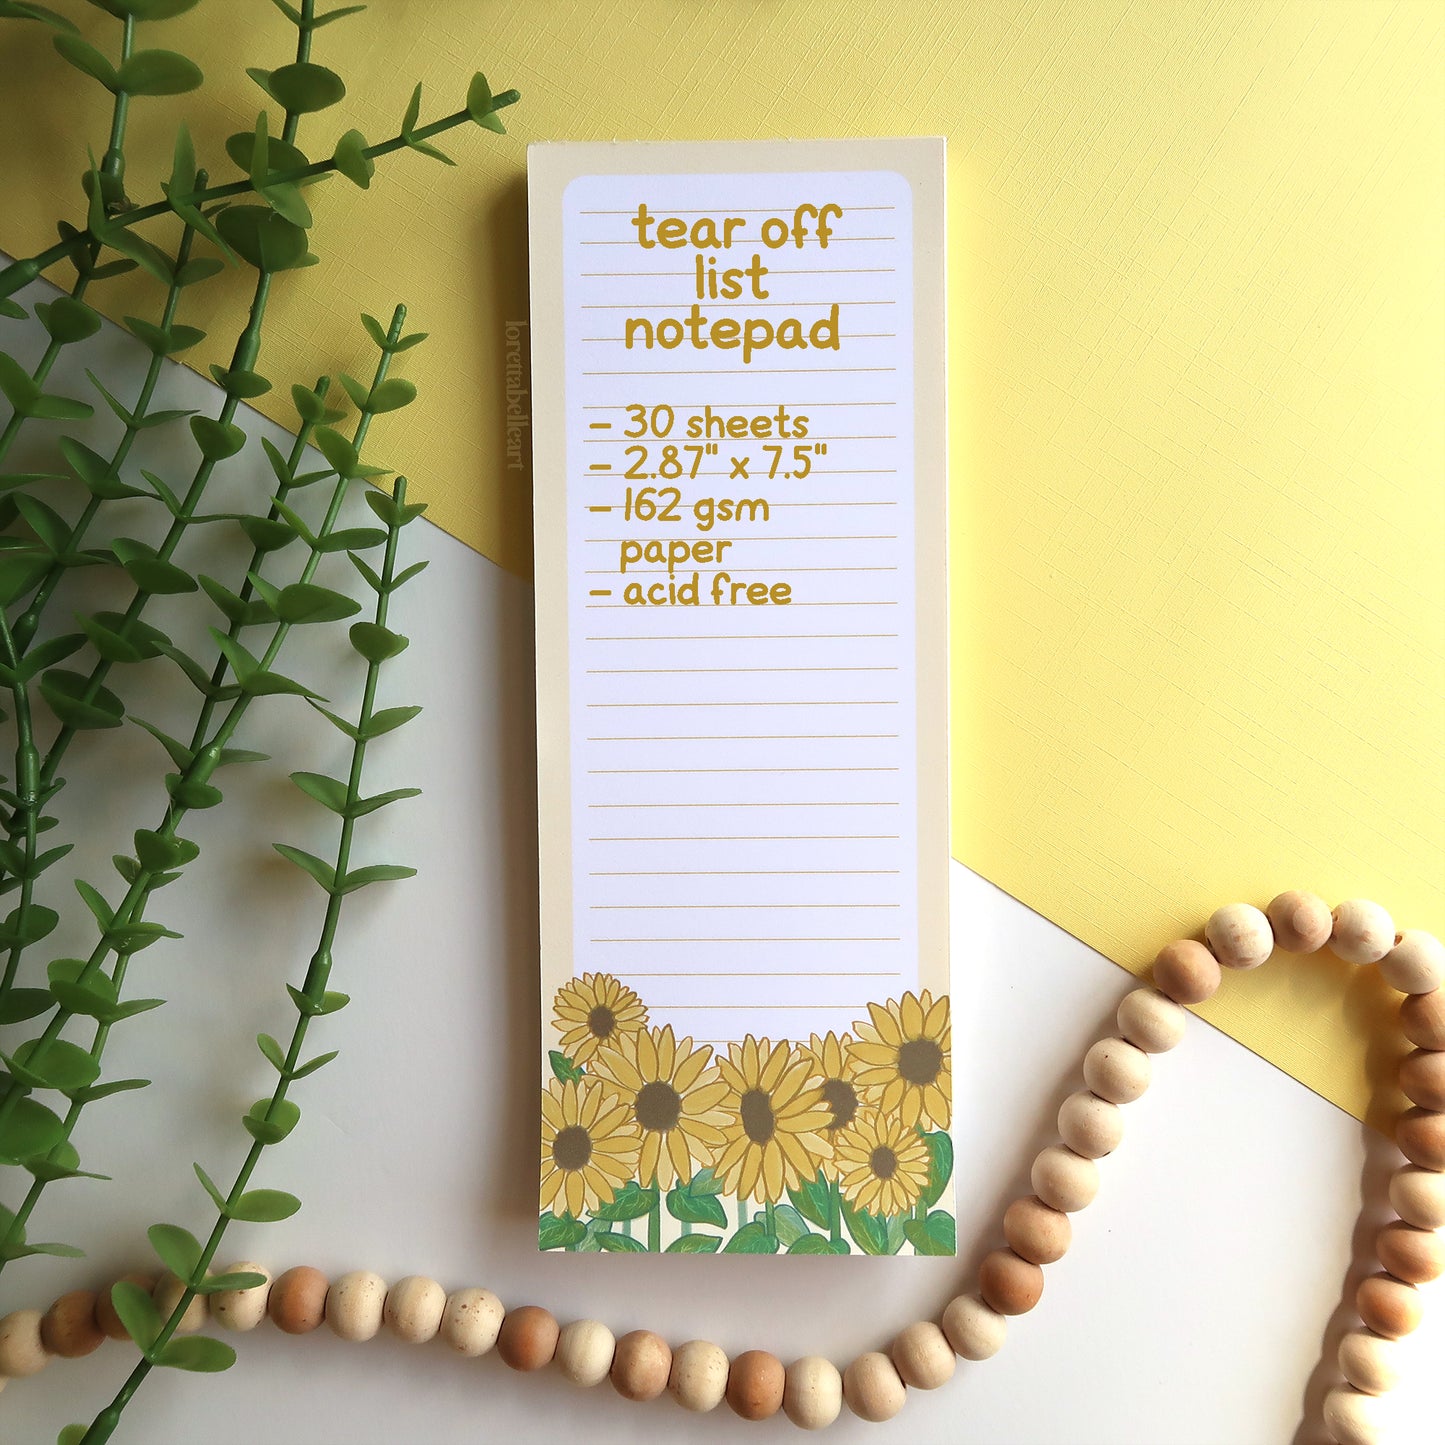 tear off
list
notepad
- 30 sheets
- 2.87" x 7.5"
- 162 gsm
paper
- acid free
lorettabelleart